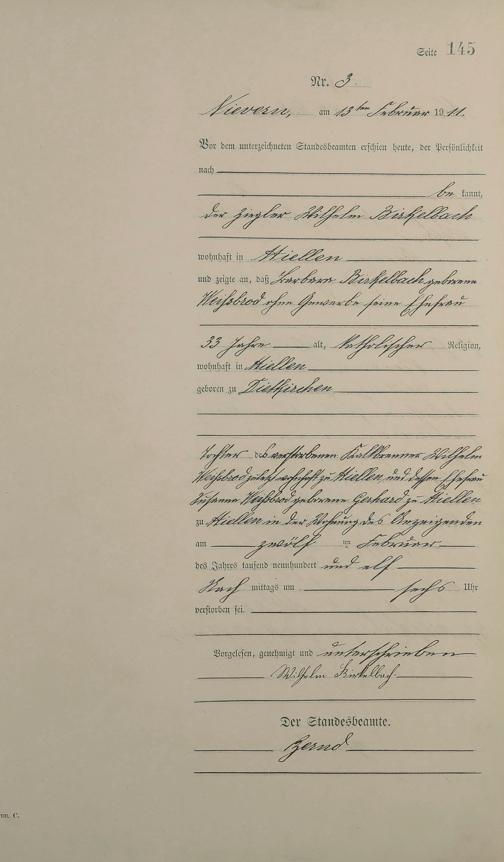 Seite 145
Nr. 3.
Nievern, am 13ten Februar 1911.
Vor dem unterzeichneten Standesbeamten erschien heute, der Persönlichkeit
nach
be kannt,
der Ziegler Wilhelm Birkelbach
wohnhaft in Miellen
und zeigte an, daß Barbara Birkelbach geborene
Weihsbrod ohne Gewerbe seine Ehefrau
33 Jahre alt, katholischer Religion,
wohnhaft in Miellen
geboren zu Dietkirchen
Tochter des verstorbenen Kalkbrenner Wilhelm
Weihsbrod zuletzt wohnhaft zu Miellen und dessen Ehefrau
Susanna Weihsbrod geborene Gerhard zu Miellen
zu Miellen in der Wohnung des Anzeigenden
am zwölf ten Februar
des Jahres tausend neunhundert und elf
Nach mittags um sechs Uhr
verstorben sei.
Vorgelesen, genehmigt und unterschrieben
Wilhelm Birkelbach
Der Standesbeamte.
C.